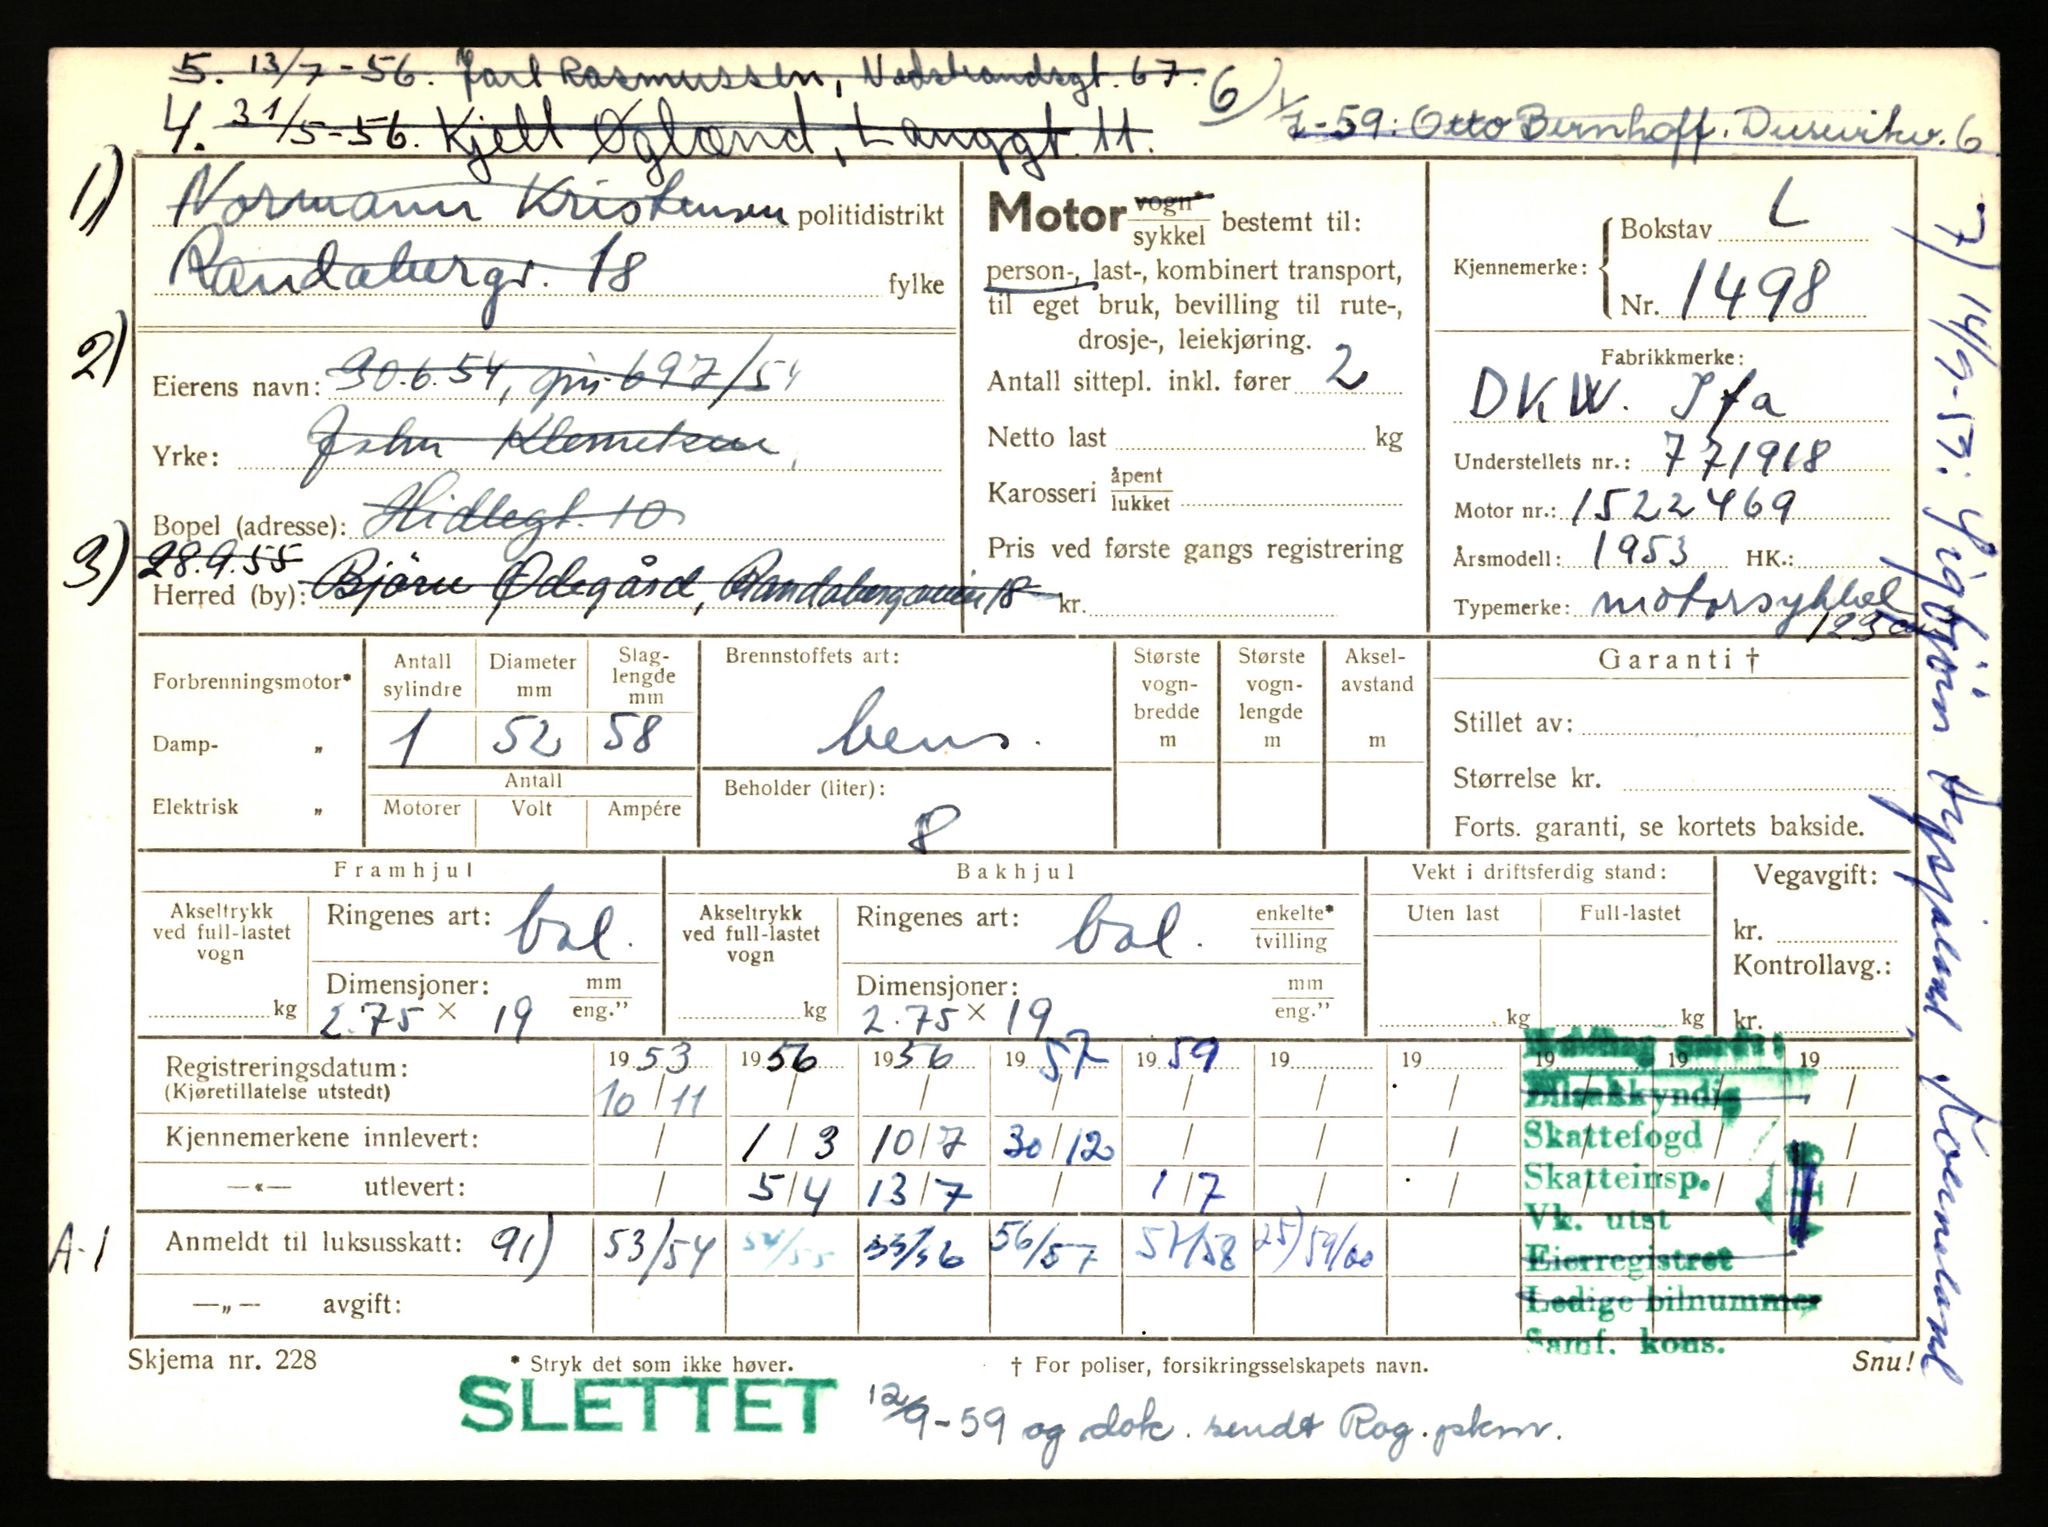 5. 13/7-56. Jarl Rasmussen, Nedstrandsgt. 67.
4. 31/5-56. Kjell Øglænd, Langgt. 11.
6) 1/7-59: Otto Bernhoff.
1) Normann Kristensen politidistrikt
Randabergv. 18 fylke
2) Eierens navn: 30.6.54, 697/54
Yrke: John Klemetsen,
Bopel (adresse): Hidlegt. 10
3) 28.9.55
Herred (by): Bjørn Ødegård, Randabergveien 18
Motor vogn*/sykkel bestemt til:
person-, last-, kombinert transport,
til eget bruk, bevilling til rute-,
drosje-, leiekjøring.
Antall sittepl. inkl. fører 2
Netto last kg
Karosseri åpent/lukket
Pris ved første gangs registrering
kr.
Kjennemerke: Bokstav L
Nr. 1498
Fabrikkmerke:
DKW. Ifa
Understellets nr.: 771918
Motor nr.: 1522469
Årsmodell: 1953 HK.:
Typemerke: motorsykkel
7) 14/9-59: Sigbjørn
Forbrenningsmotor*
Damp- „
Elektrisk „
Antall sylindre 1
Diameter mm 52
Slaglengde mm 58
Antall
Motorer Volt Ampére
Brennstoffets art:
bens.
Beholder (liter):
8
Største vogn-bredde m
Største vogn-lengde m
Aksel-avstand m
Garanti †
Stillet av:
Størrelse kr.
Forts. garanti, se kortets bakside.
Framhjul
Akseltrykk ved full-lastet vogn kg
Ringenes art: bal.
Dimensjoner: mm/eng."
2.75 × 19
Bakhjul
Akseltrykk ved full-lastet vogn kg
Ringenes art: bal. enkelte*/tvilling
Dimensjoner: mm/eng."
2.75 × 19
Vekt i driftsferdig stand:
Uten last Full-lastet
kg kg
Vegavgift:
kr.
Kontrollavg.:
kr.
Registreringsdatum: 1953 1956 1956 1957 1959 19 19 19 19 19
(Kjøretillatelse utstedt) 10/11 / / / / / / / / /
Kjennemerkene innlevert: / 1/3 10/7 30/12 / / / / / /
—«— utlevert: / 5/4 13/7 / 1/7 / / / / /
A-1 Anmeldt til luksusskatt: 91) 53/54 54/55 55/56 56/57 57/58 25) 59/60
—„— avgift:
Melding sendt:
Bilsakkyndig
Skattefogd
Skatteinsp.
Vk. utst
Eierregistret
Ledige bilnummer
Samf. kons.
Skjema nr. 228
* Stryk det som ikke høver.
† For poliser, forsikringsselskapets navn.
Snu!
SLETTET 12/9-59 og dok. sendt Rog. pskm.